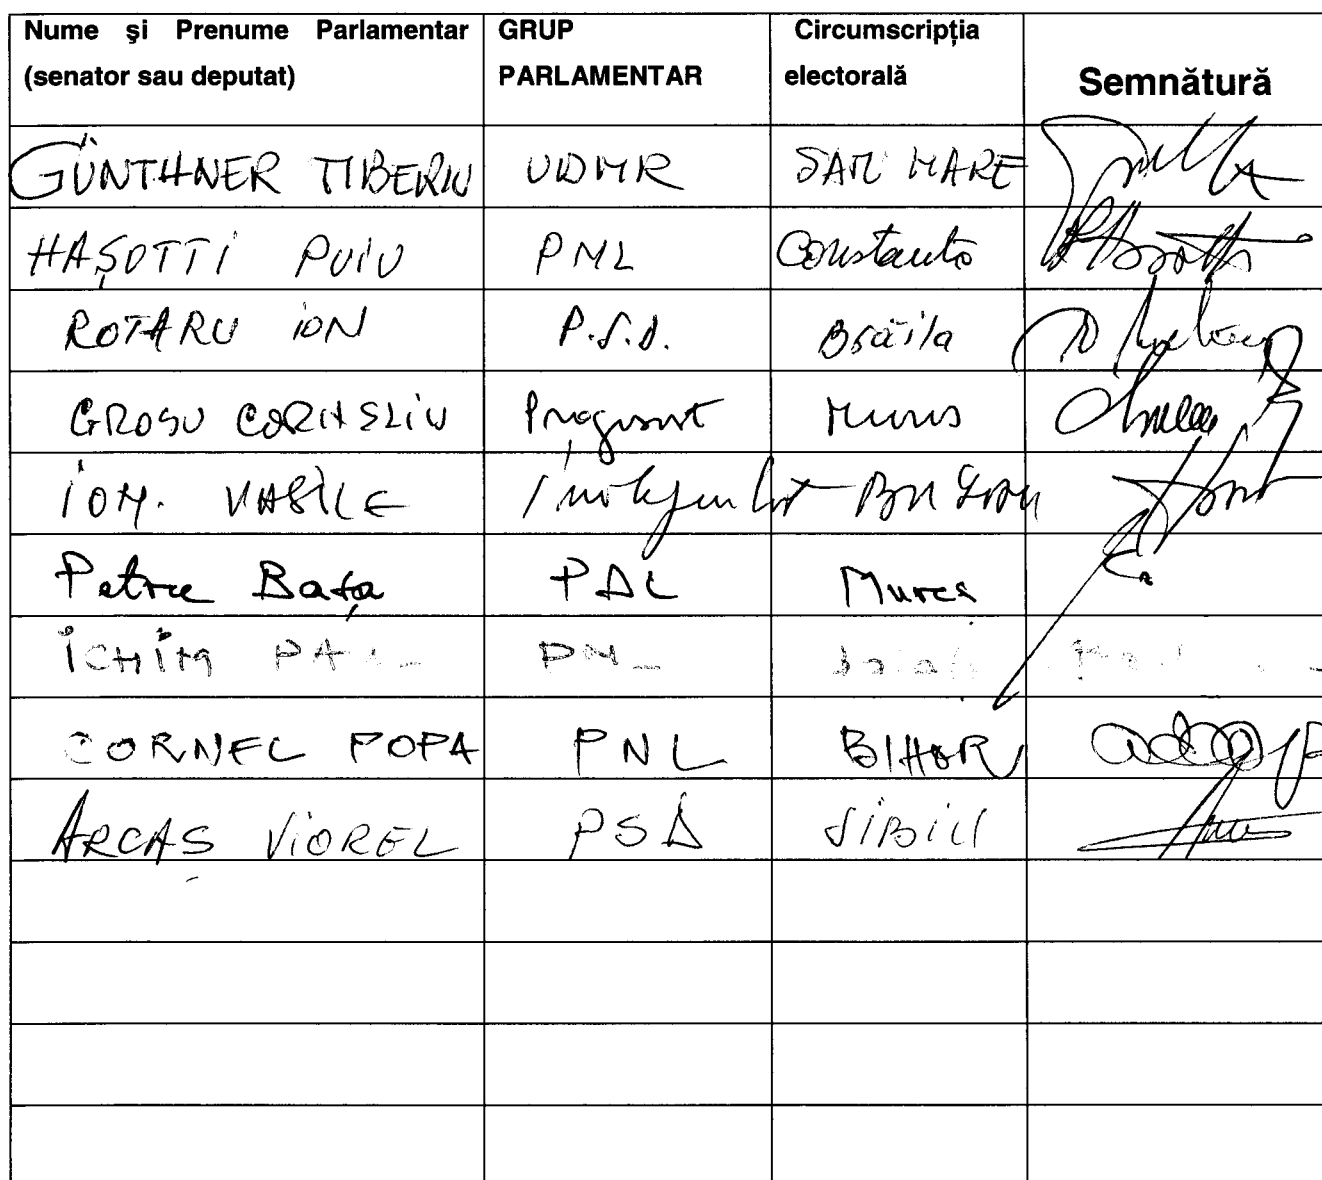 Nume şi Prenume Parlamentar (senator sau deputat) GRUP PARLAMENTAR Circumscripţia electorală Semnătură
GÜNTHNER TIBERIU UDMR SATU MARE
HAŞOTTI PUIU PNL Constanta
ROTARU ION P.S.D. Brăila
GROSU CORNELIU Mures
ION. VASILE
Petru Başa Mures
ICHIM
CORNEL POPA PNL BIHOR
ARCAŞ VIOREL PSD SIBIU